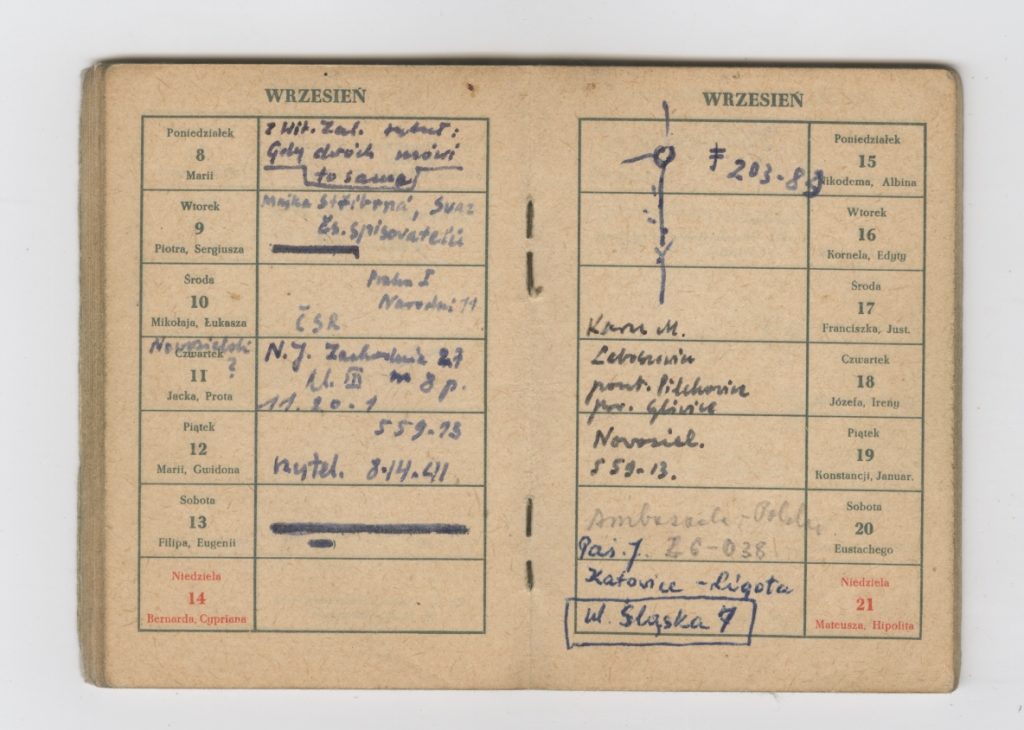 WRZESIEŃ
Poniedziałek
8
Marii
z Wit. Zal. tytuł:
Gdy dwóch mówi
to samo
Wtorek
9
Piotra, Sergiusza
Majka Stříbrná, Svaz
čs. spisovatelů
Środa
10
Mikołaja, Łukasza
Praha I
Narodni 11
ČSR
Nowosielski
?
Czwartek
11
Jacka, Prota
N.J. Zachodnia 27
kl. III m 8 p.
11.20.1
Piątek
12
Marii, Gwidona
559-13
8-14-41
Sobota
13
Filipa, Eugenii
Niedziela
14
Bernarda, Cypriana
WRZESIEŃ
Poniedziałek
15
Nikodema, Albina
203-83
Wtorek
16
Kornela, Edyty
Środa
17
Franciszka, Just.
M.
Czwartek
18
Józefa, Ireny
poczt. Pilchowice
pow. Gliwice
Piątek
19
Konstancji, Januar.
Nowosiel.
559-13.
Sobota
20
Eustachego
Paś. J. 26-038
Niedziela
21
Mateusza, Hipolita
Katowice - Ligota
ul. Śląska 7